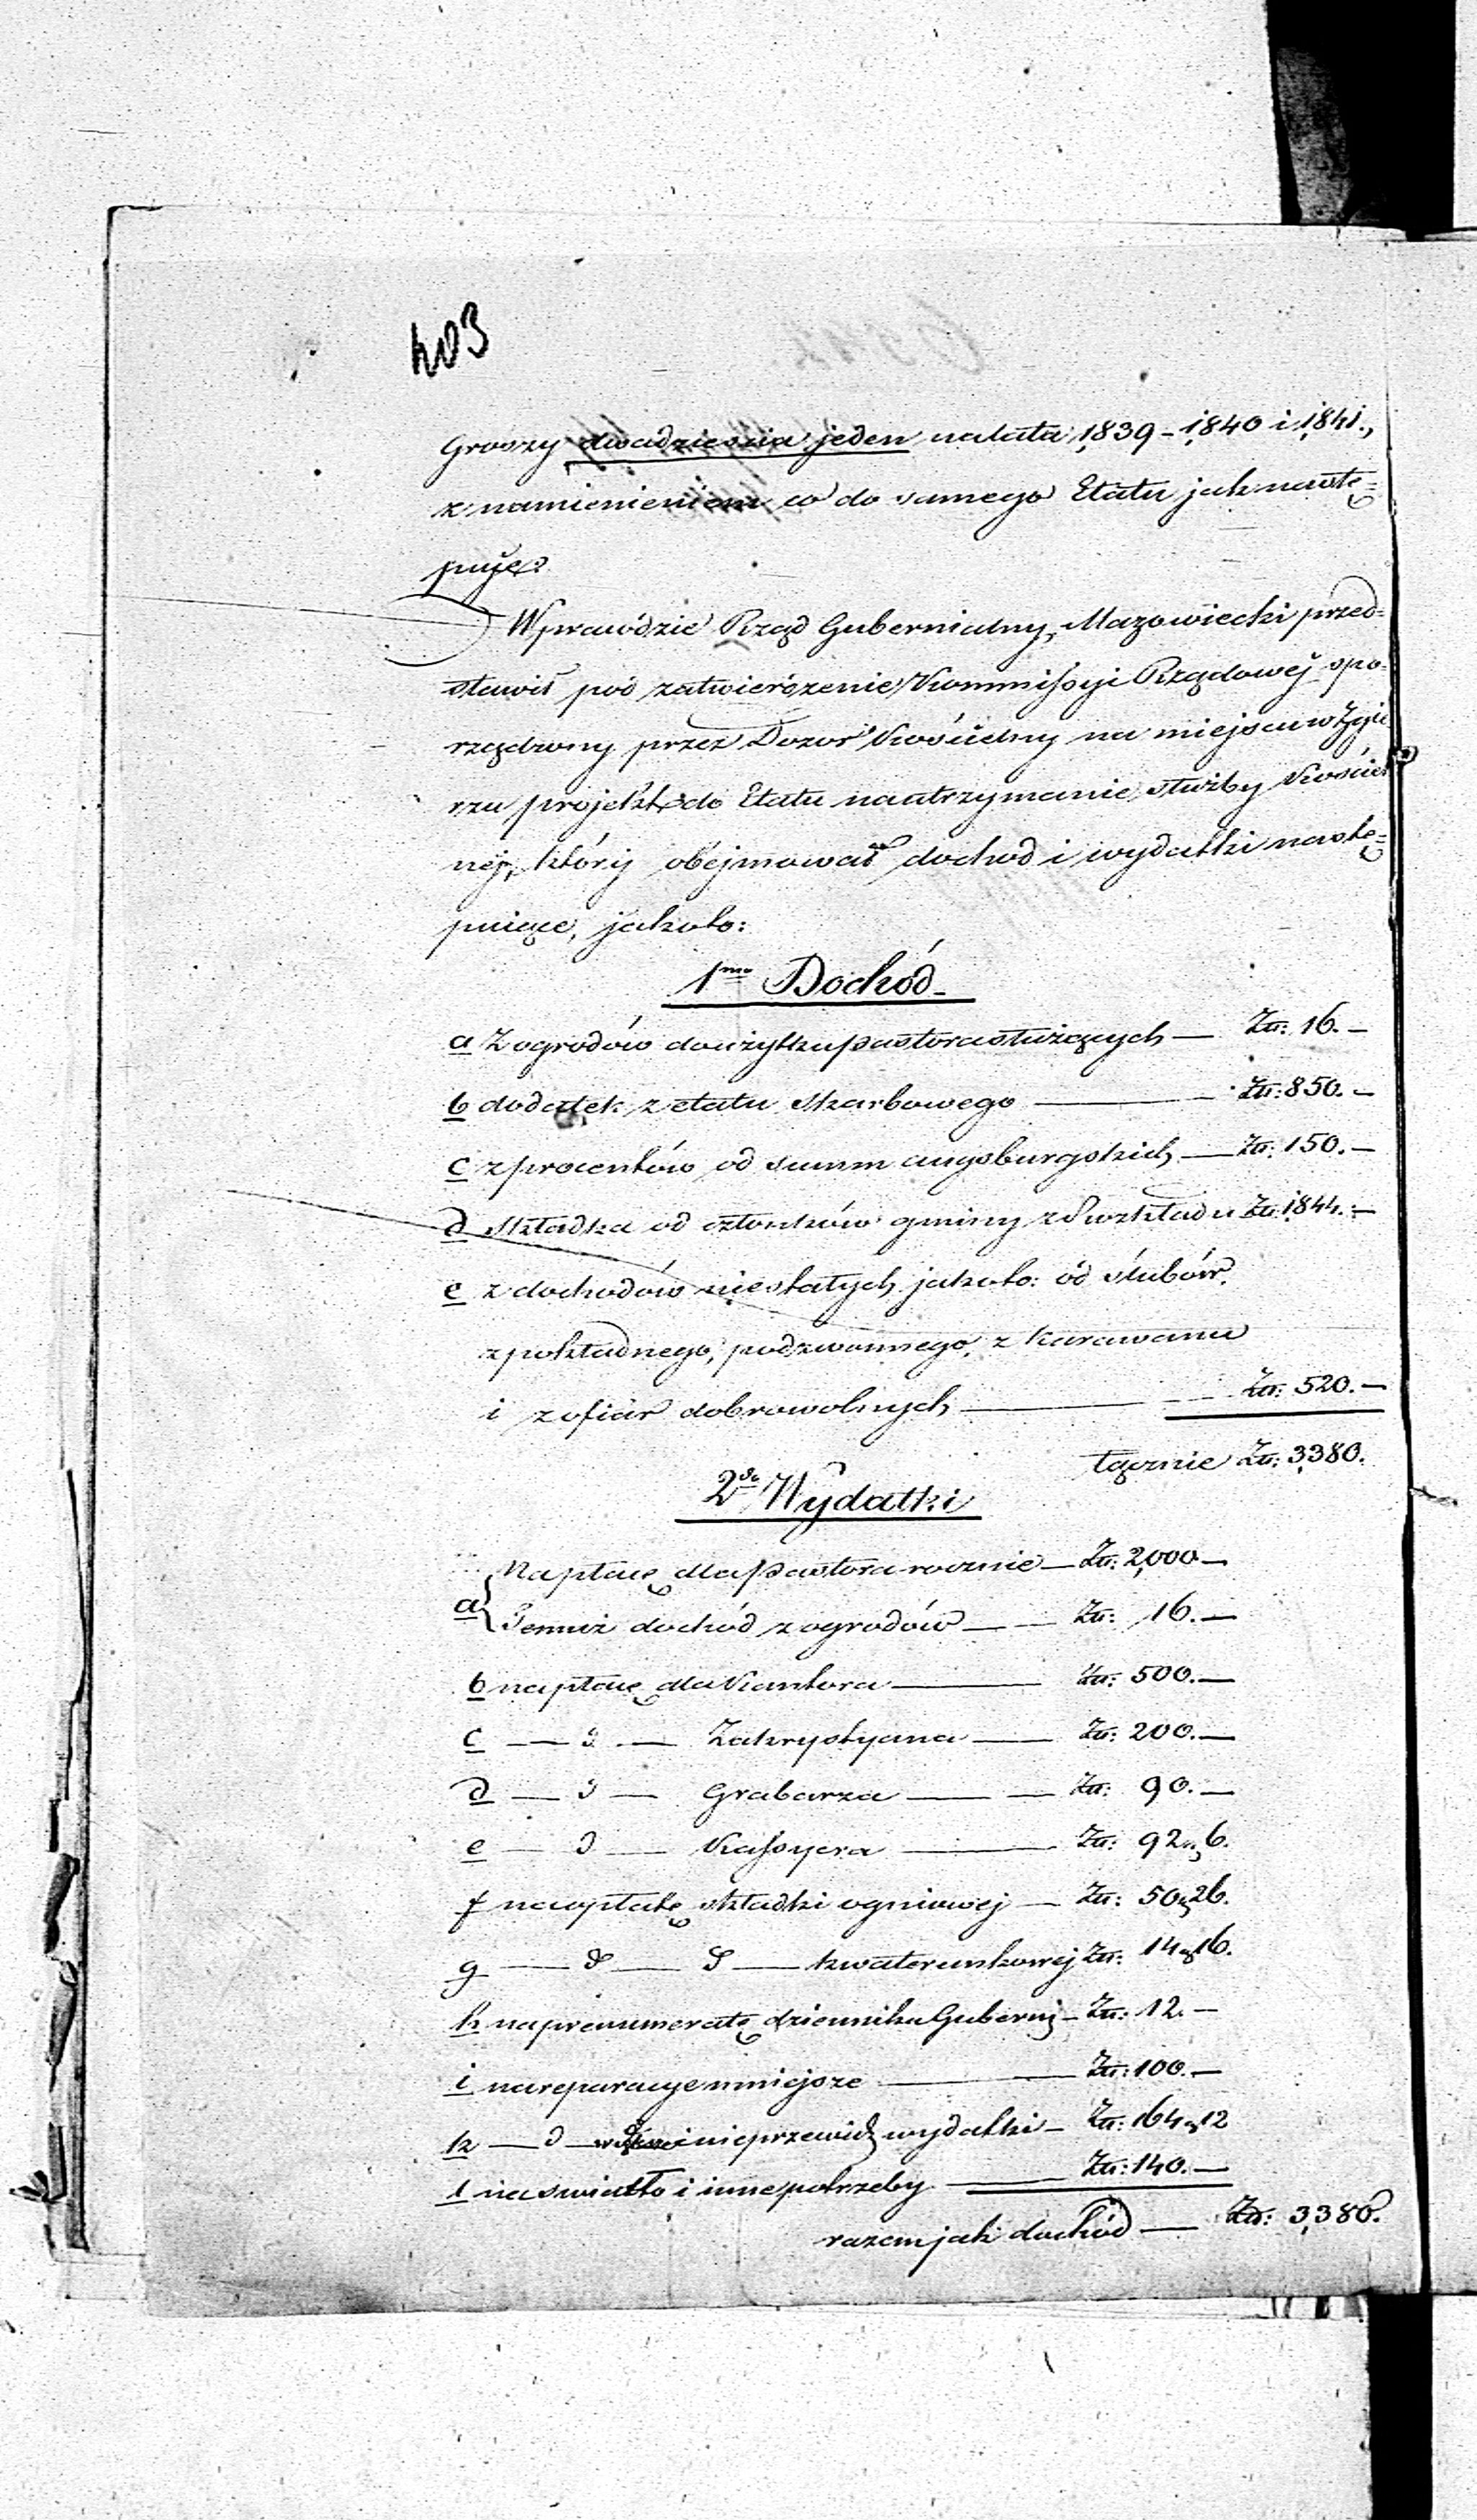 403
Groszy dwadzieścia jeden na lata 1839 - 1840 i 1841.,
z namienieniem co do samego Etatu jak nastę=
puje:
Wprawdzie Rząd Gubernialny Mazowiecki przed=
stawił pod zatwierdzenie Kommissyi Rządowej spo=
rządzony przez Dozór Kościelny na miejscu w Zgie
rzu projekt do Etatu na utrzymanie służby Kościel
nej, który obejmował dochod i wydatki nastę=
puiące, jakoto:
1mo Dochód
a Z ogrodów do użytku pastora służących — Zł: 16. —
b dodatek z etatu Skarbowego — Zł: 850. —
c z procentów od summ augsburgskich — Zł: 150. —
d Składka od członków gminy z rozkładu Zł: 1844. —
e z dochodów niestałych jakoto: od ślubów,
z pokładnego, podzwonnego, z karawanu
i z ofiar dobrowolnych — Zł: 520. —
łącznie Zł: 3,380.
2do Wydatki
a Na płacę dla pastora rocznie — Zł: 2,000 —
Temuż dochód z ogrodów — Zł: 16. —
b na płacę dla Kantora — Zł: 500. —
c — d — Zakrystyana — Zł: 200. —
d — d — Grabarza — Zł: 90. —
e — d — Kassyera — Zł: 92 „ 6.
f na opłatę składki ogniowej — Zł: 50 „ 26.
g — d — d — kwaterunkowej Zł: 14 „ 16.
h na prenumeratę dziennika Gubern: — Zł: 12. —
i na reparacye mniejsze — Zł: 100. —
k — d — nieprzewidz wydatki — Zł: 164 „ 12
l na światło i inne potrzeby — Zł: 140. —
razem jak dochód — Zł: 3,380.